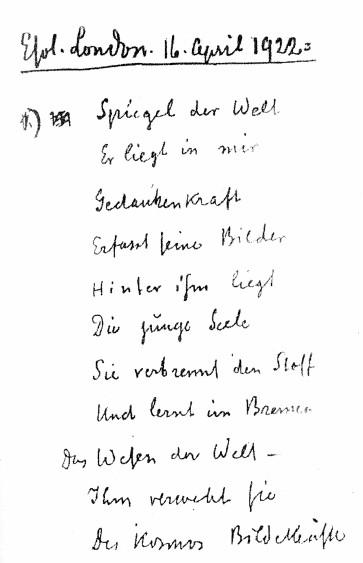 Esot. London. 16. April 1922 =
1.)
Spiegel der Welt
Er liegt in mir
Gedankenkraft
Erfasst seine Bilder
Hinter ihm liegt
Die junge Seele
Sie verbrennt den Stoff
Und lernt im Brennen
Das Wesen der Welt –
Ihm verwebt sie
Des Kosmos Bildekräfte